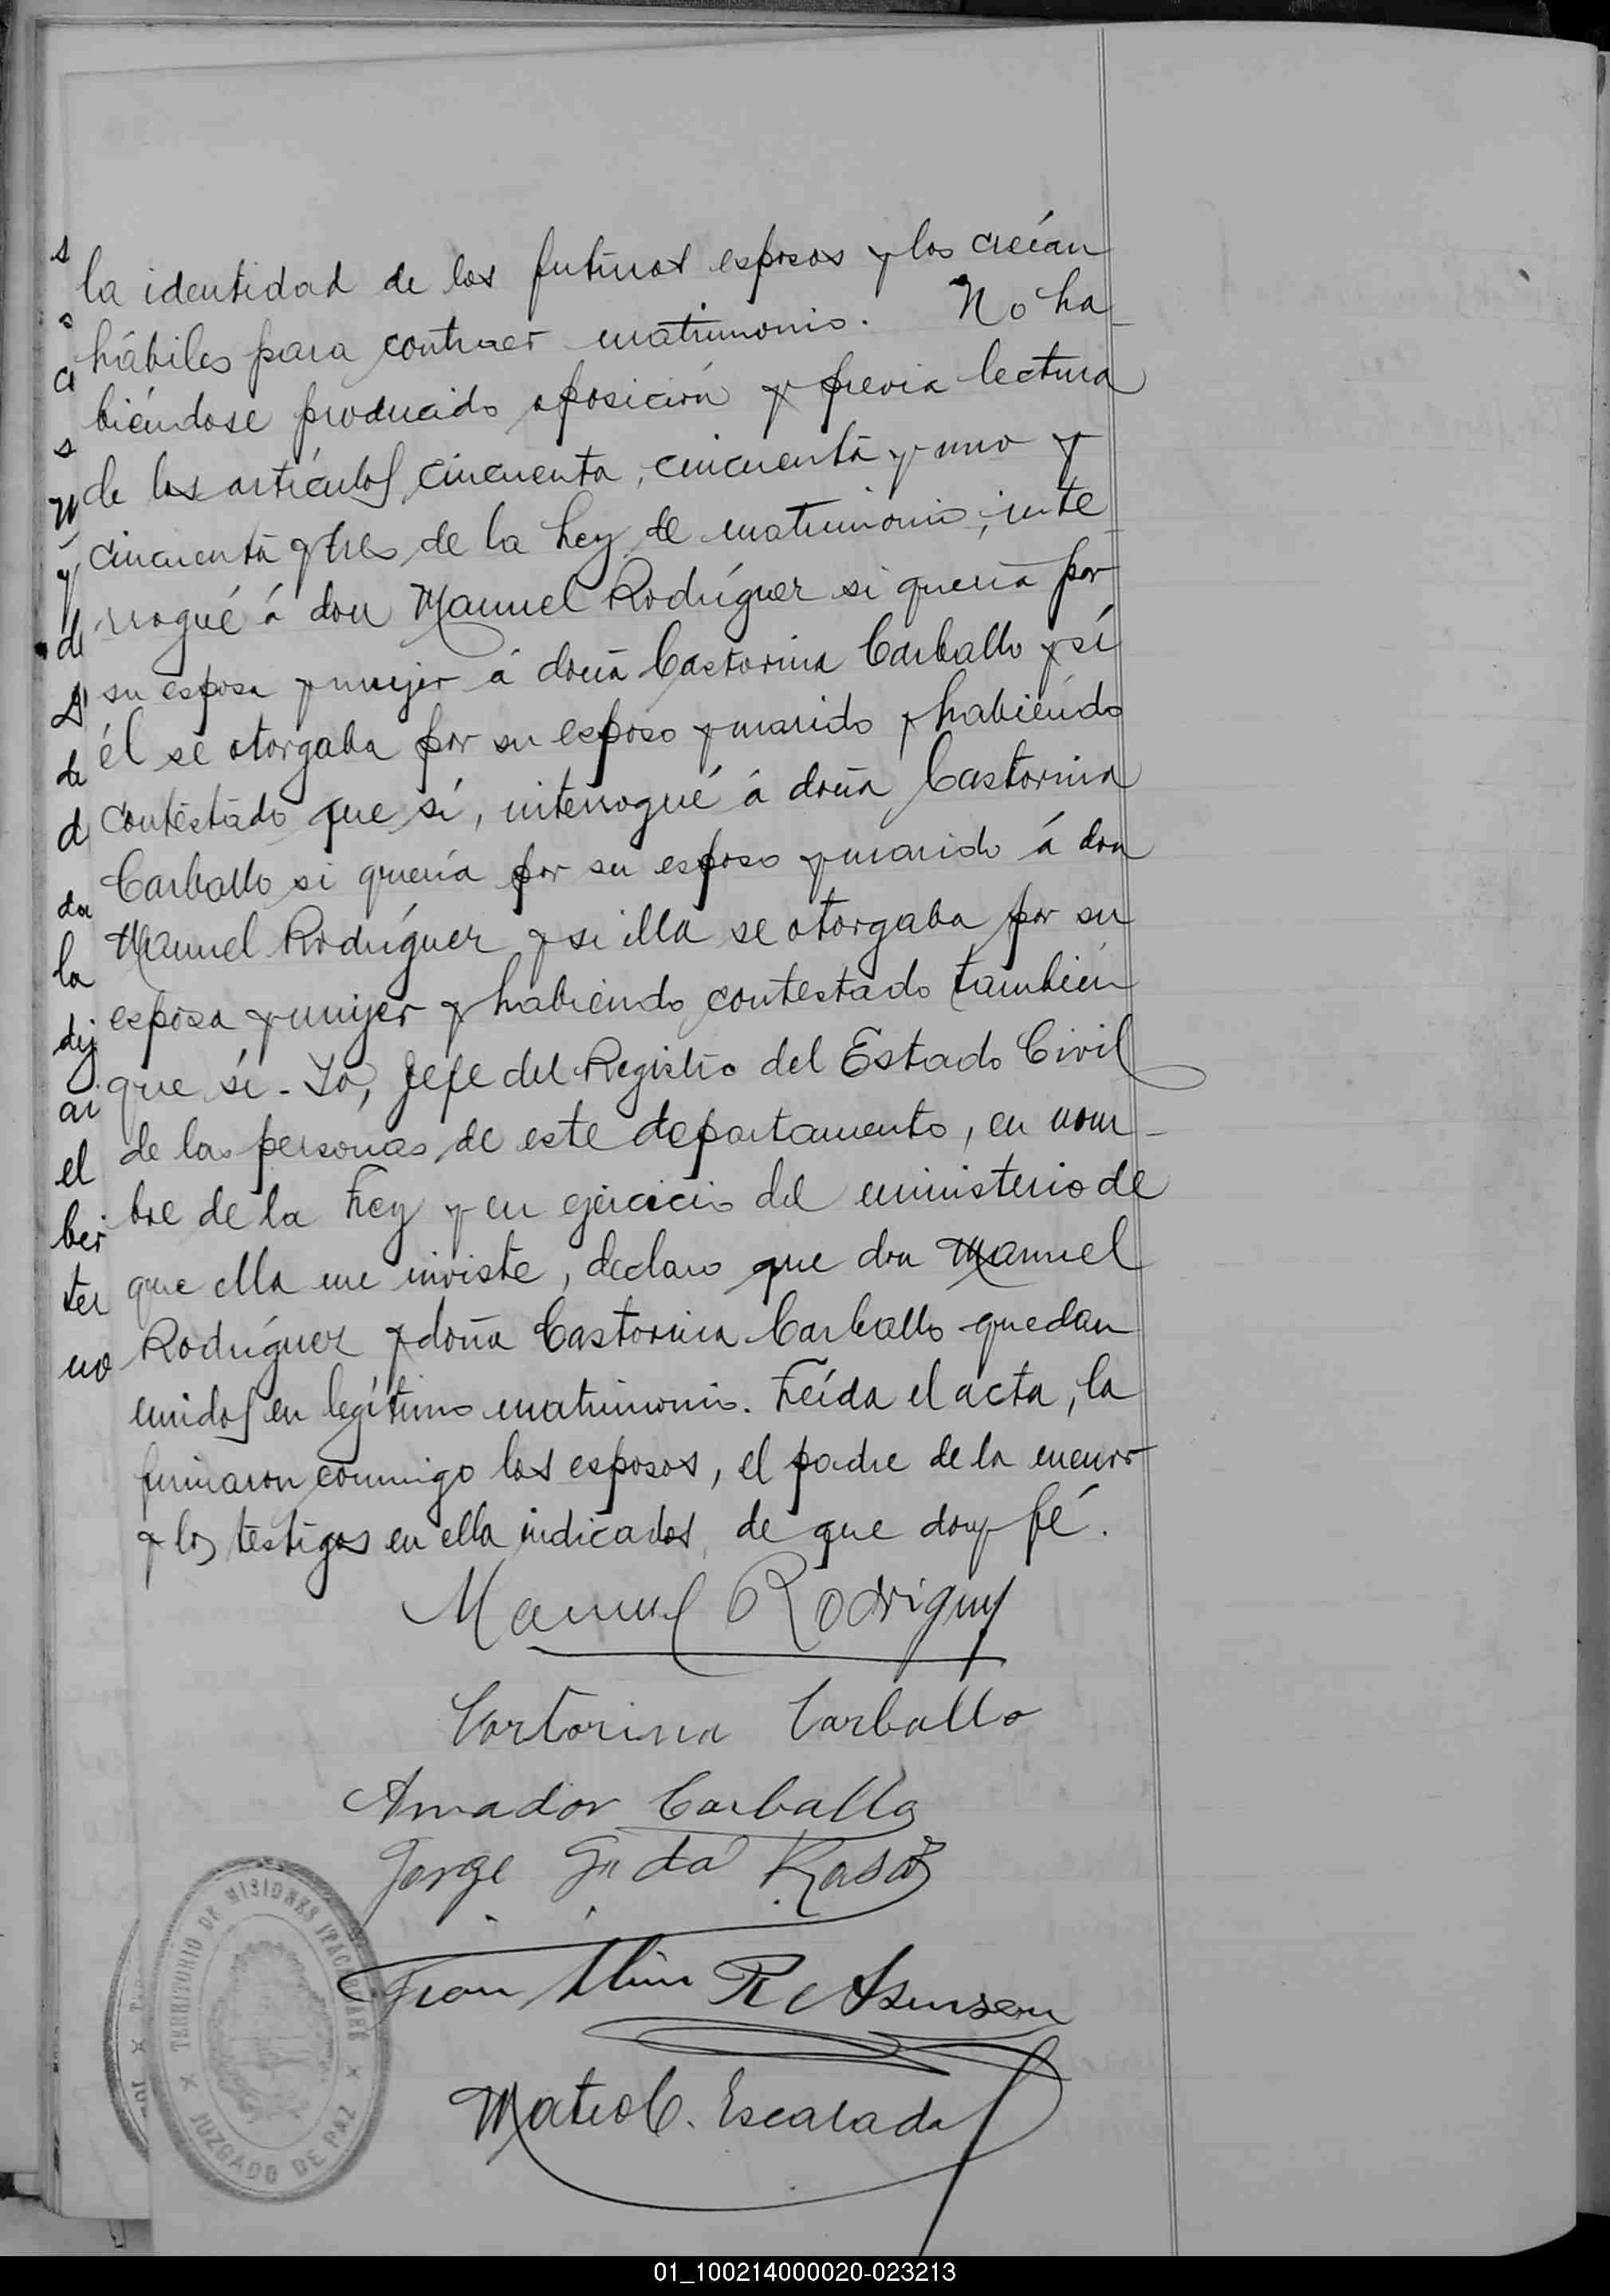 la identidad de los futuros esposos y los creían
hábiles para contraer matrimonio. No ha-
biéndose producido oposición y previa lectura
de los artículos cincuenta, cincuenta y uno y
cincuenta y tres de la Ley de matrimonio, inte-
rrogué á don Manuel Rodríguez si quería por
su esposa y mujer á doña Castorina Carballo y si
él se otorgaba por su esposo y marido y habiendo
contestado que sí, interrogué á doña Castorina
Carballo si quería por su esposo y marido á don
Manuel Rodríguez y si ella se otorgaba por su
esposa y mujer y habiendo contestado también
que sí - Yo, Jefe del Registro del Estado Civil
de las personas de este departamento, en nom-
bre de la Ley y en ejercicio del ministerio de
que ella me inviste, declaro que don Manuel
Rodríguez y doña Castorina Carballo quedan
unidos en legítimo matrimonio. Leída el acta, la
firmaron conmigo los esposos, el padre de la menor
y los testigos en ella indicados, de que doy fé.
Manuel Rodriguez
Castorina Carballo
Amador Carballo
Jorge
R Asunson
Mateo C. Escalada
TERRITORIO DE MISIONES
JUZGADO DE PAZ
s
a
s
y
d
de
d
da
la
dij
ai
el
ber
ter
no
01_100214000020-023213